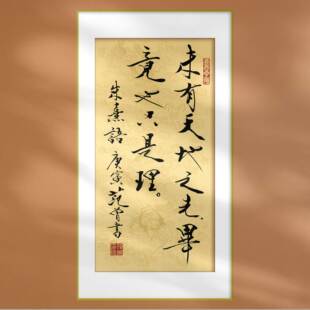 未有天地之先、畢
竟也只是理。
朱熹語 庚寅 範曾書